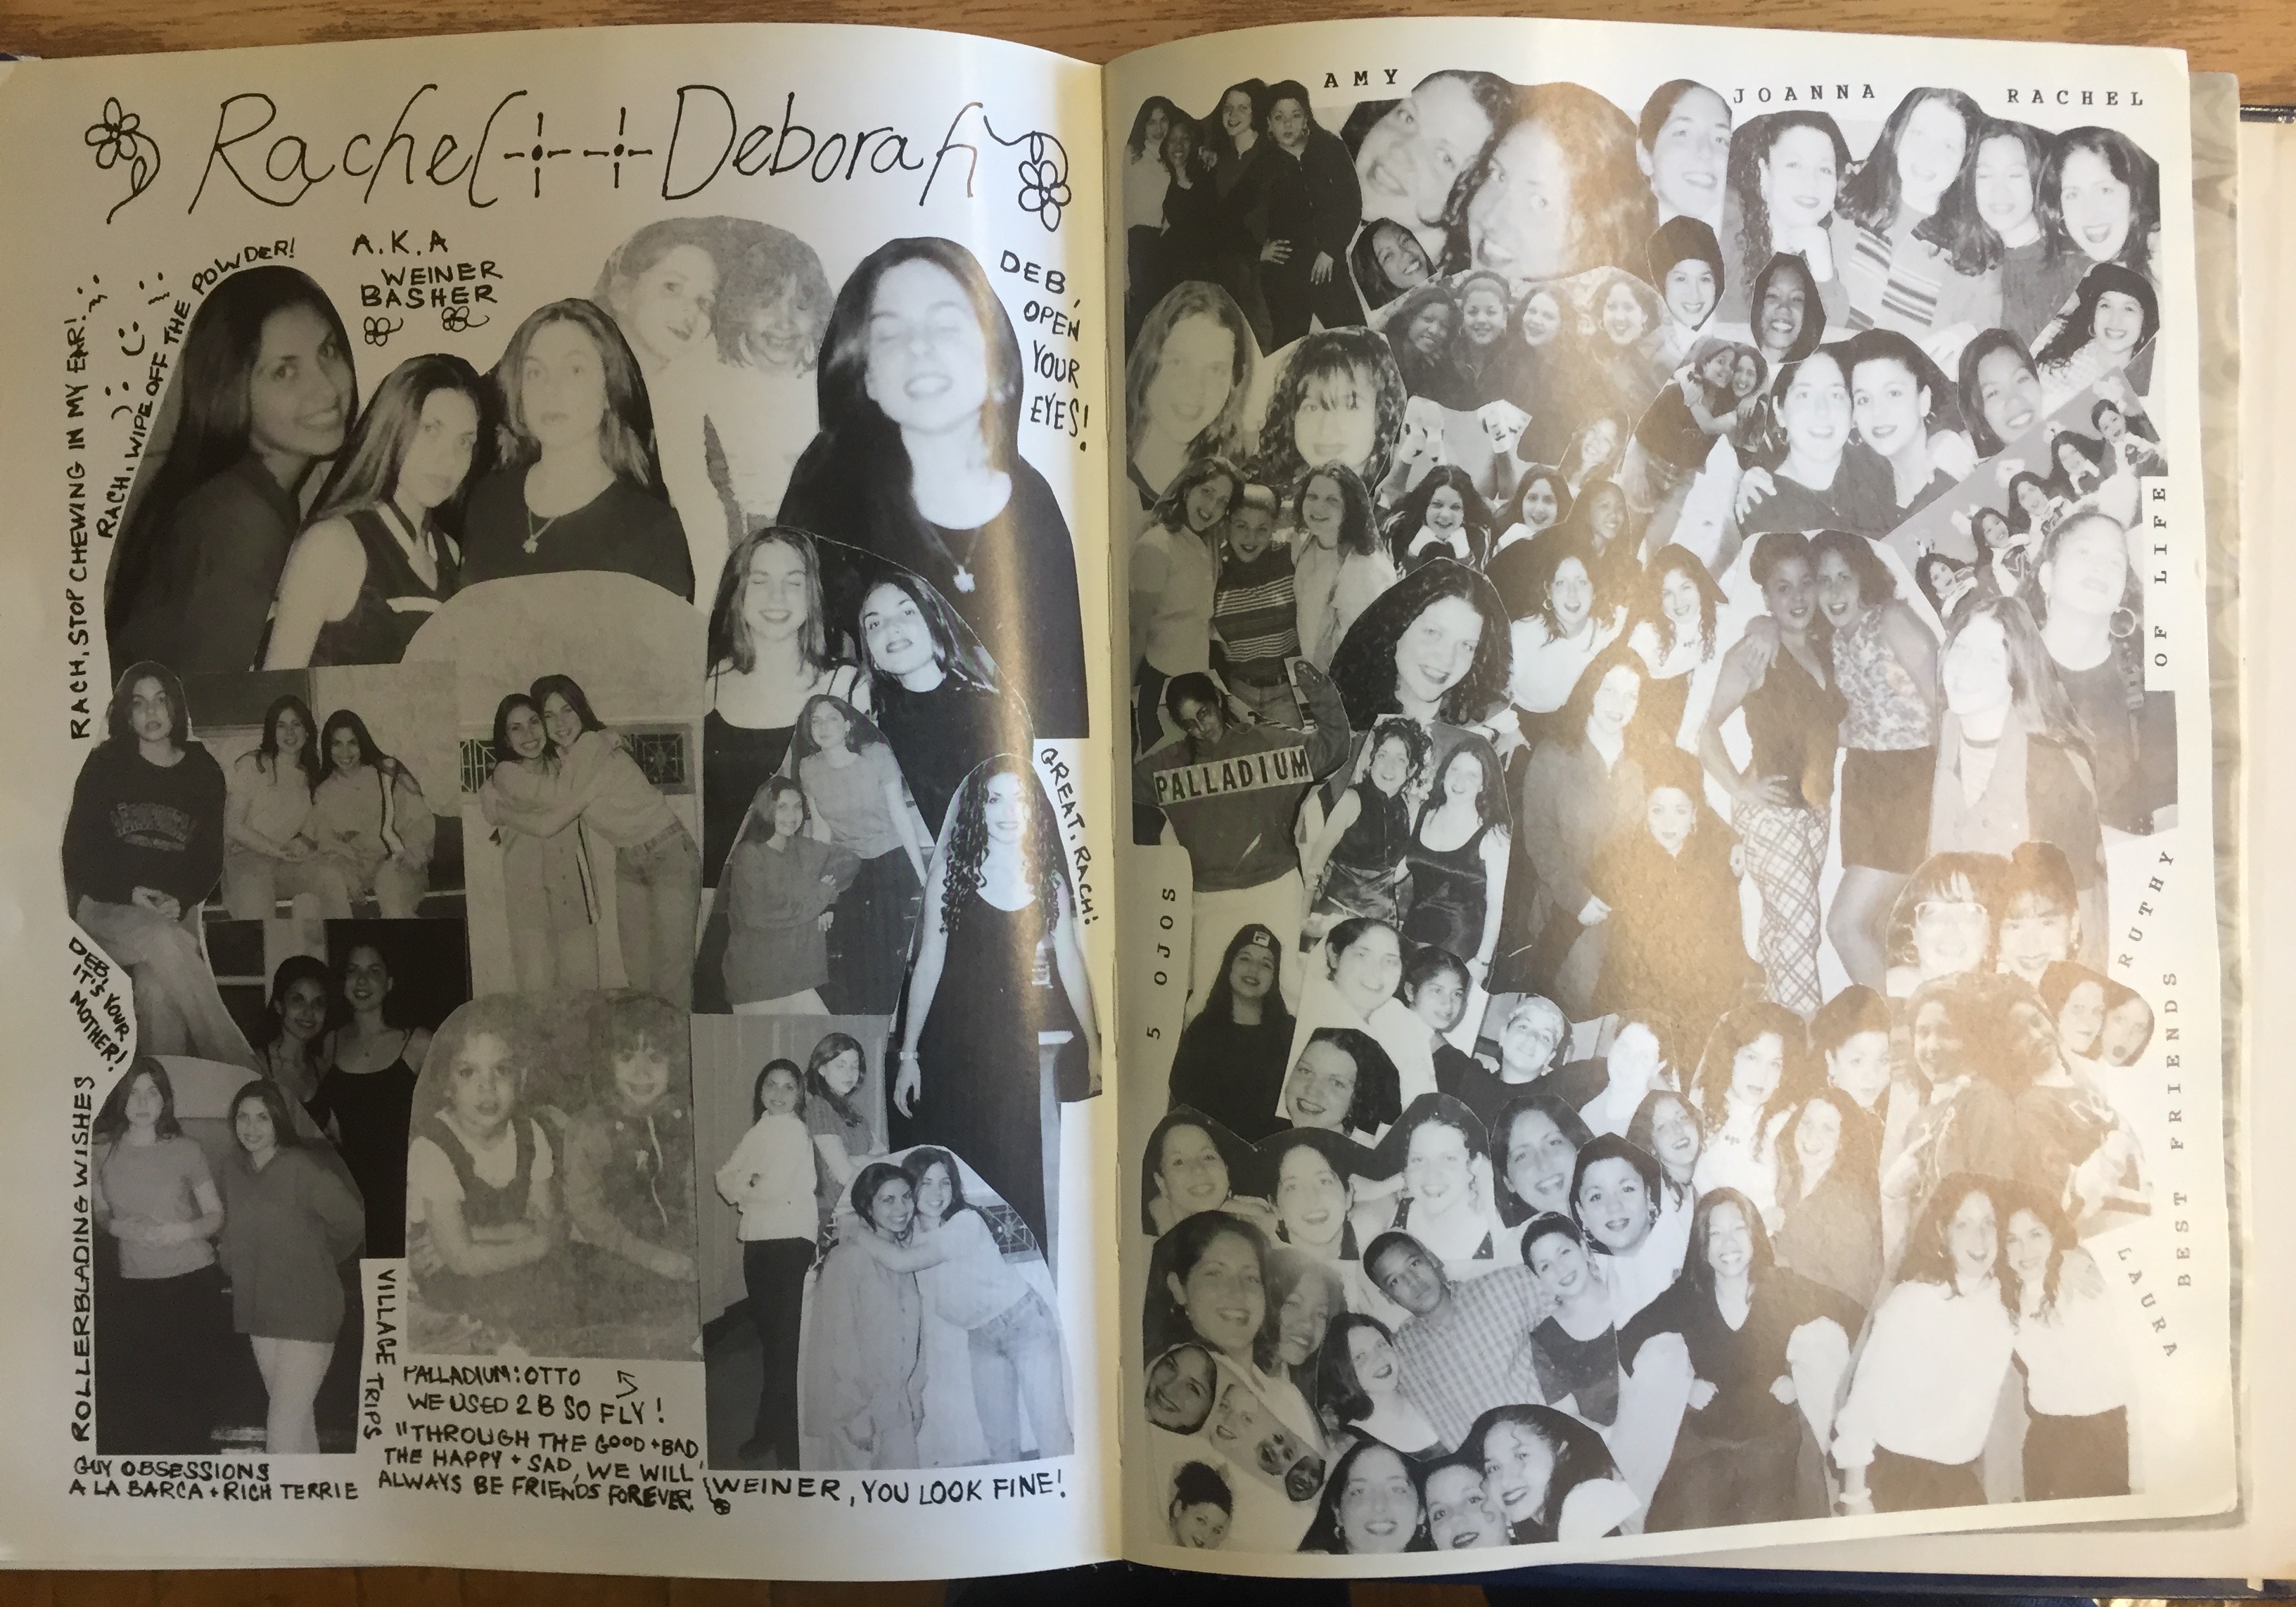 Rachel ++ Deborah
A.K.A
WEINER
BASHER
RACH, STOP CHEWING IN MY EAR!
RACH, WIPE OFF THE POWDER!
DEB,
OPEN
YOUR
EYES!
GREAT, RACH!
DEB,
IT'S YOUR
MOTHER!
ROLLERBLADING WISHES
GUY OBSESSIONS
A LA BARCA + RICH TERRIE
VILLAGE TRIPS
PALLADIUM: OTTO
WE USED 2 B SO FLY!
"THROUGH THE GOOD + BAD,
THE HAPPY + SAD, WE WILL
ALWAYS BE FRIENDS FOREVER.
WEINER, YOU LOOK FINE!
AMY
JOANNA
RACHEL
OF LIFE
PALLADIUM
5 OJOS
RUTHY
BEST FRIENDS
LAURA